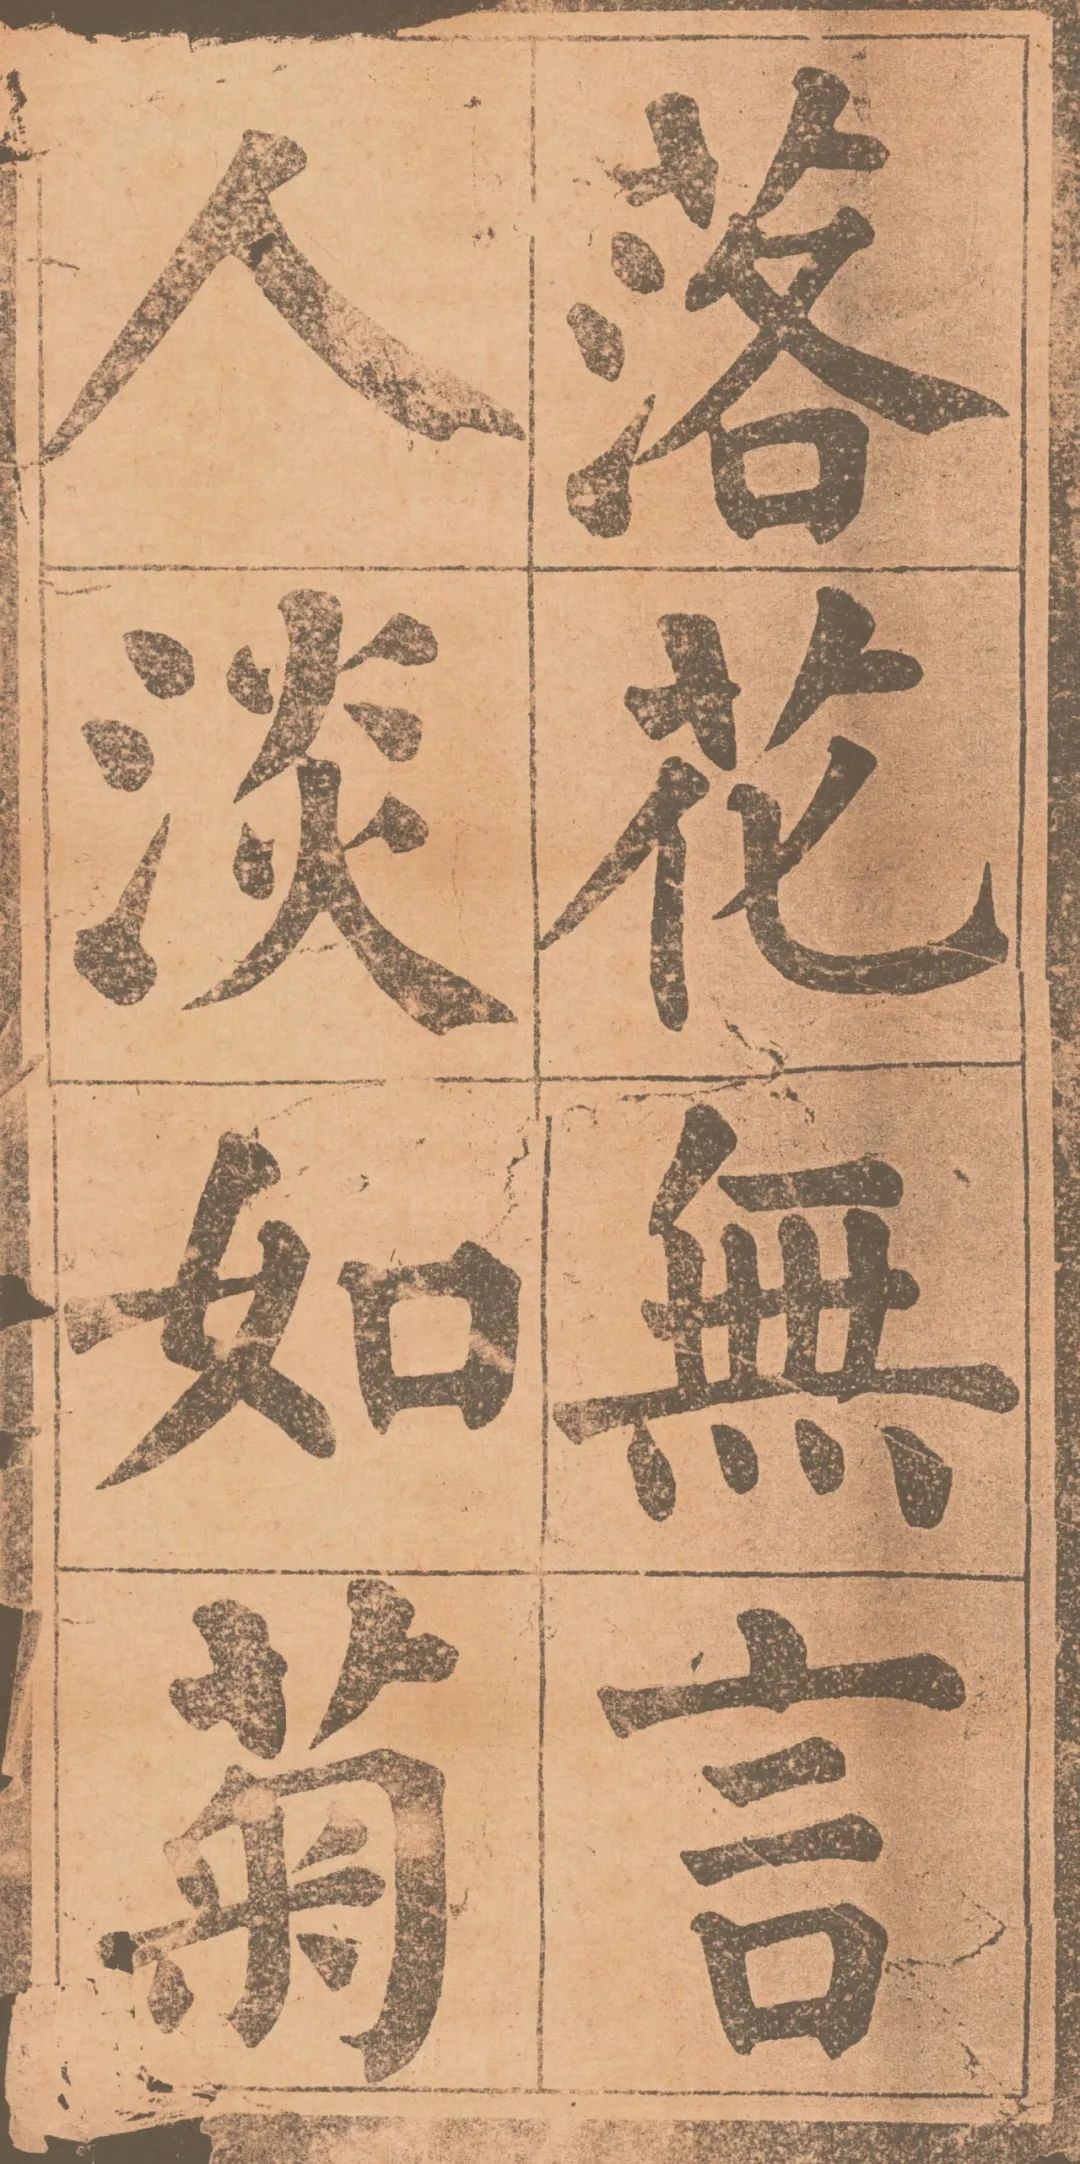 落花無言
人淡如菊